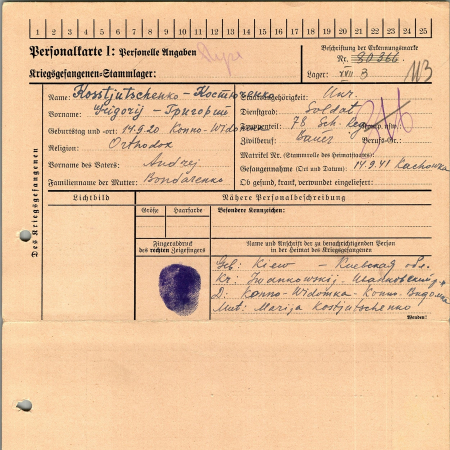 1 2 3 4 5 6 7 8 9 10 11 12 13 14 15 16 17 18 19 20 21 22 23 24 25
Personalkarte I: Personelle Angaben
Kriegsgefangenen-Stammlager:
Beschriftung der Erkennungsmarke
Nr. 30366
Lager: XVII B
Des Kriegsgefangenen
Name: Kosstjutschenko - Костюченко
Vorname: Grigorij - Григорий
Geburtstag und -ort: 14.9.20 Konno-Widomka
Religion: Orthodox
Vorname des Vaters: Andrej
Familienname der Mutter: Bondarenko
Staatsangehörigkeit: Ukr.
Dienstgrad: Soldat
Truppenteil: 78 Sch. Reg.
Zivilberuf: Bauer Berufs-Gr.:
Matrikel Nr. (Stammrolle des Heimatstaates):
Gefangennahme (Ort und Datum): 14.9.41 Kachowka
Ob gesund, krank, verwundet eingeliefert:
Lichtbild
Nähere Personalbeschreibung
Größe
Haarfarbe
Besondere Kennzeichen:
Fingerabdruck
des rechten Zeigefingers
Name und Anschrift der zu benachrichtigenden Person
in der Heimat des Kriegsgefangenen
Geb: Kiew Киевская обл.
Kr. Iwankowskij - Иванковский
D: Konno-Widomka - Конно-Видомка
Mut: Marija Kostjutschenko
Wenden!